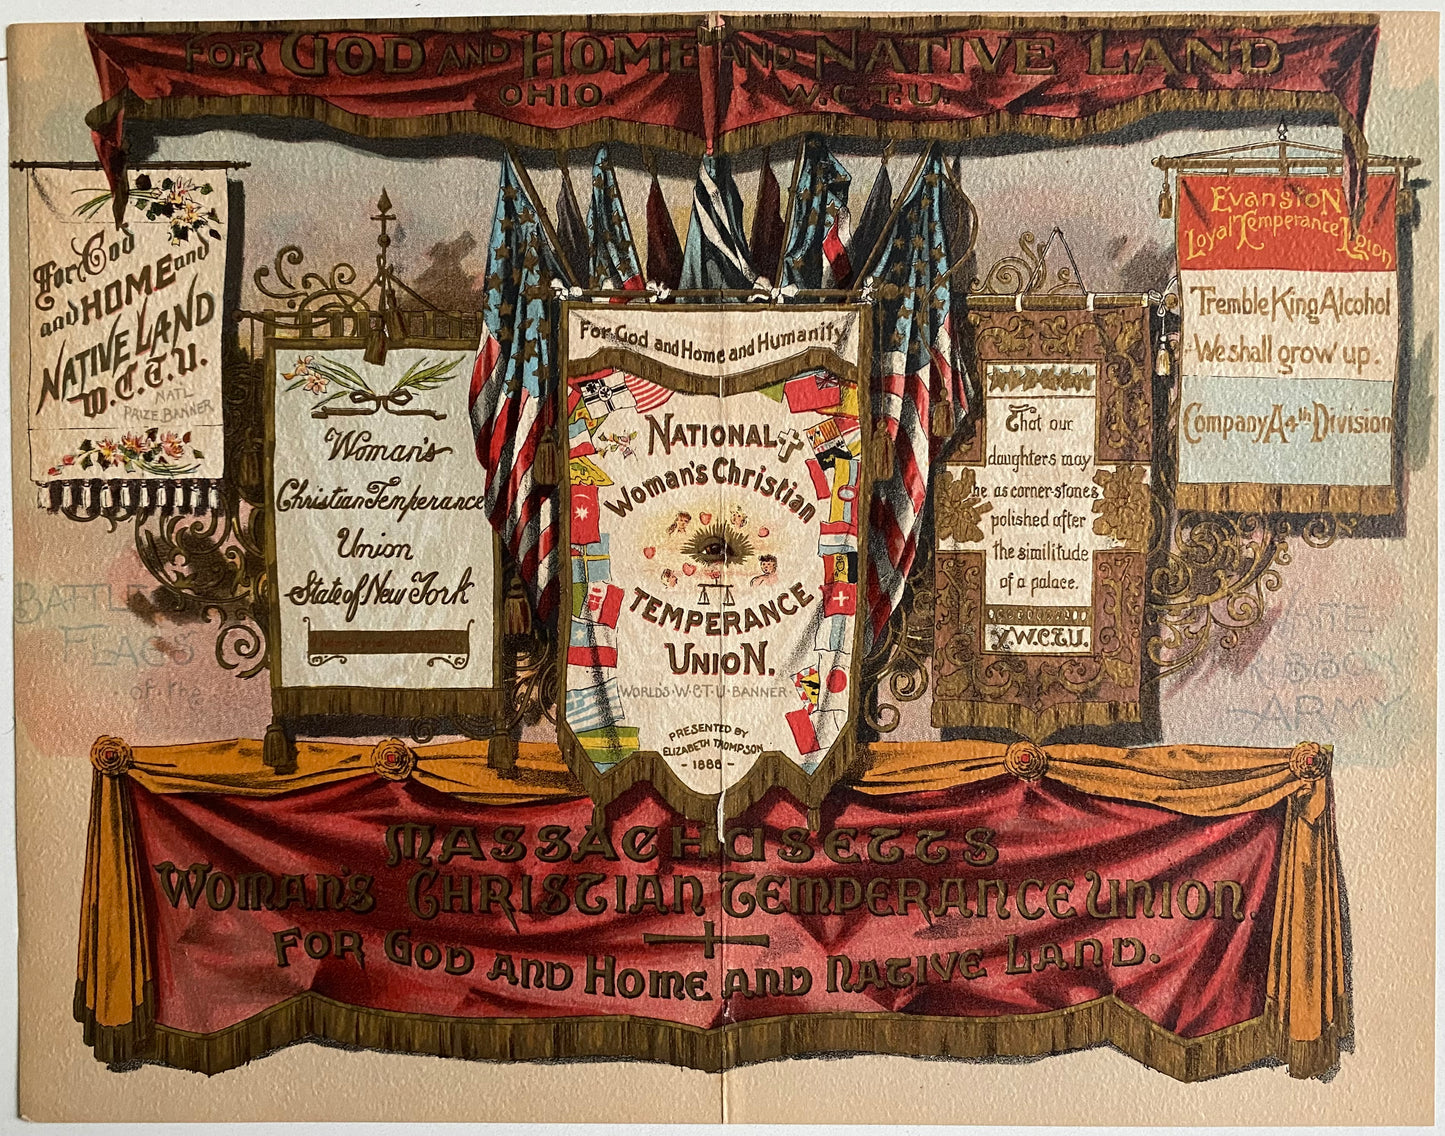 FOR GOD AND HOME AND NATIVE LAND
OHIO. W.C.T.U.
For God
and HOME and
NATIVE LAND
W.C.T.U.
NATL
PRIZE BANNER
Woman's
Christian Temperance
Union
State of New York
For God and Home and Humanity
NATIONAL
Woman's Christian
TEMPERANCE
UNION.
WORLD'S·W·C·T·U·BANNER·
PRESENTED BY
ELIZABETH THOMPSON
- 1886 -
That our
daughters may
be as corner-stones
polished after
the similitude
of a palace.
Y.W.C.T.U.
Evanston
Loyal Temperance Legion
Tremble King Alcohol
We shall grow up.
Company A 4th Division
BATTLE
FLAGS
of the
WHITE
RIBBON
ARMY
MASSACHUSETTS
WOMAN'S CHRISTIAN TEMPERANCE UNION.
FOR GOD AND HOME AND NATIVE LAND.